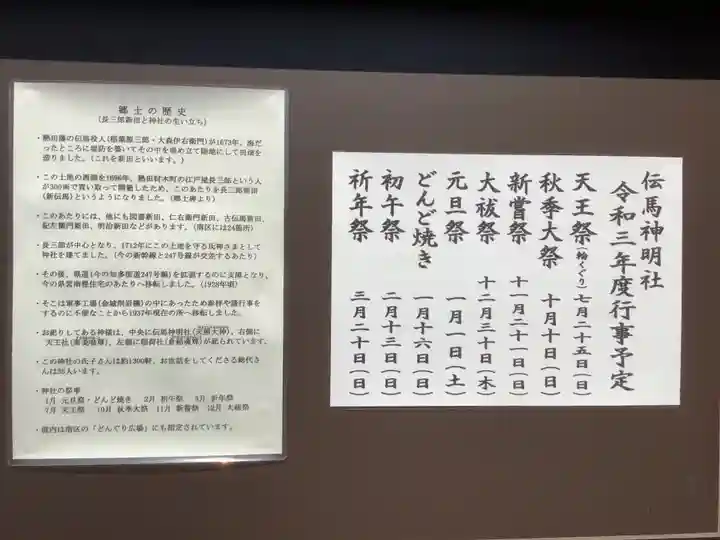 郷土の歴史
(長三郎新田と神社の生い立ち)
・熱田藩の伝馬役人(稲葉原三郎・大森伊右衛門)が1673年、海だっ
たところに堤防を築いてその中を埋め立て陸地にして田畑を
造りました。(これを新田といいます。)
・この土地の西側を1696年、熱田材木町の江戸屋長三郎という人
が300両で買い取って開墾したため、このあたりを長三郎新田
(新伝馬)というようになりました。(郷土碑より)
・このあたりには、他にも図書新田、仁右衛門新田、古伝馬新田、
紀左衛門新田、明治新田などがあります。(南区には24箇所)
・長三郎が中心となり、1712年にこの土地を守る氏神さまとして
神社を建てました。(今の新幹線と247号線が交差するあたり)
・その後、県道(今の知多街道247号線)を拡張するのに支障となり、
今の県営南標住宅のあたりへ移転しました。(1928年頃)
・そこは軍事工場
のあったため参拝や諸行事を
するのに不便なことから1937年現在の所へ移転しました。
・お祀りしてある神様は、中央に伝馬神明社(天照大神)、右側に
天王社
、左側に稲荷社
が祀られています。
・この神社の氏子さんは約1300軒、お世話をしてくださる総代さ
んは35人います。
・神社の祭事
1月 元旦祭・どんど焼き 2月 初午祭 3月 祈年祭
7月 天王祭 10月 秋季大祭 11月 新嘗祭 12月 大祓祭
・境内は南区の「どんぐり広場」にも指定されています。
伝馬神明社
令和三年度行事予定
天王祭(輪くぐり)七月二十五日(日)
秋季大祭 十月十日(日)
新嘗祭 十一月二十一日(日)
大祓祭 十二月三十日(木)
元旦祭 一月一日(土)
どんど焼き 一月十六日(日)
初午祭 二月十三日(日)
祈年祭 三月二十日(日)